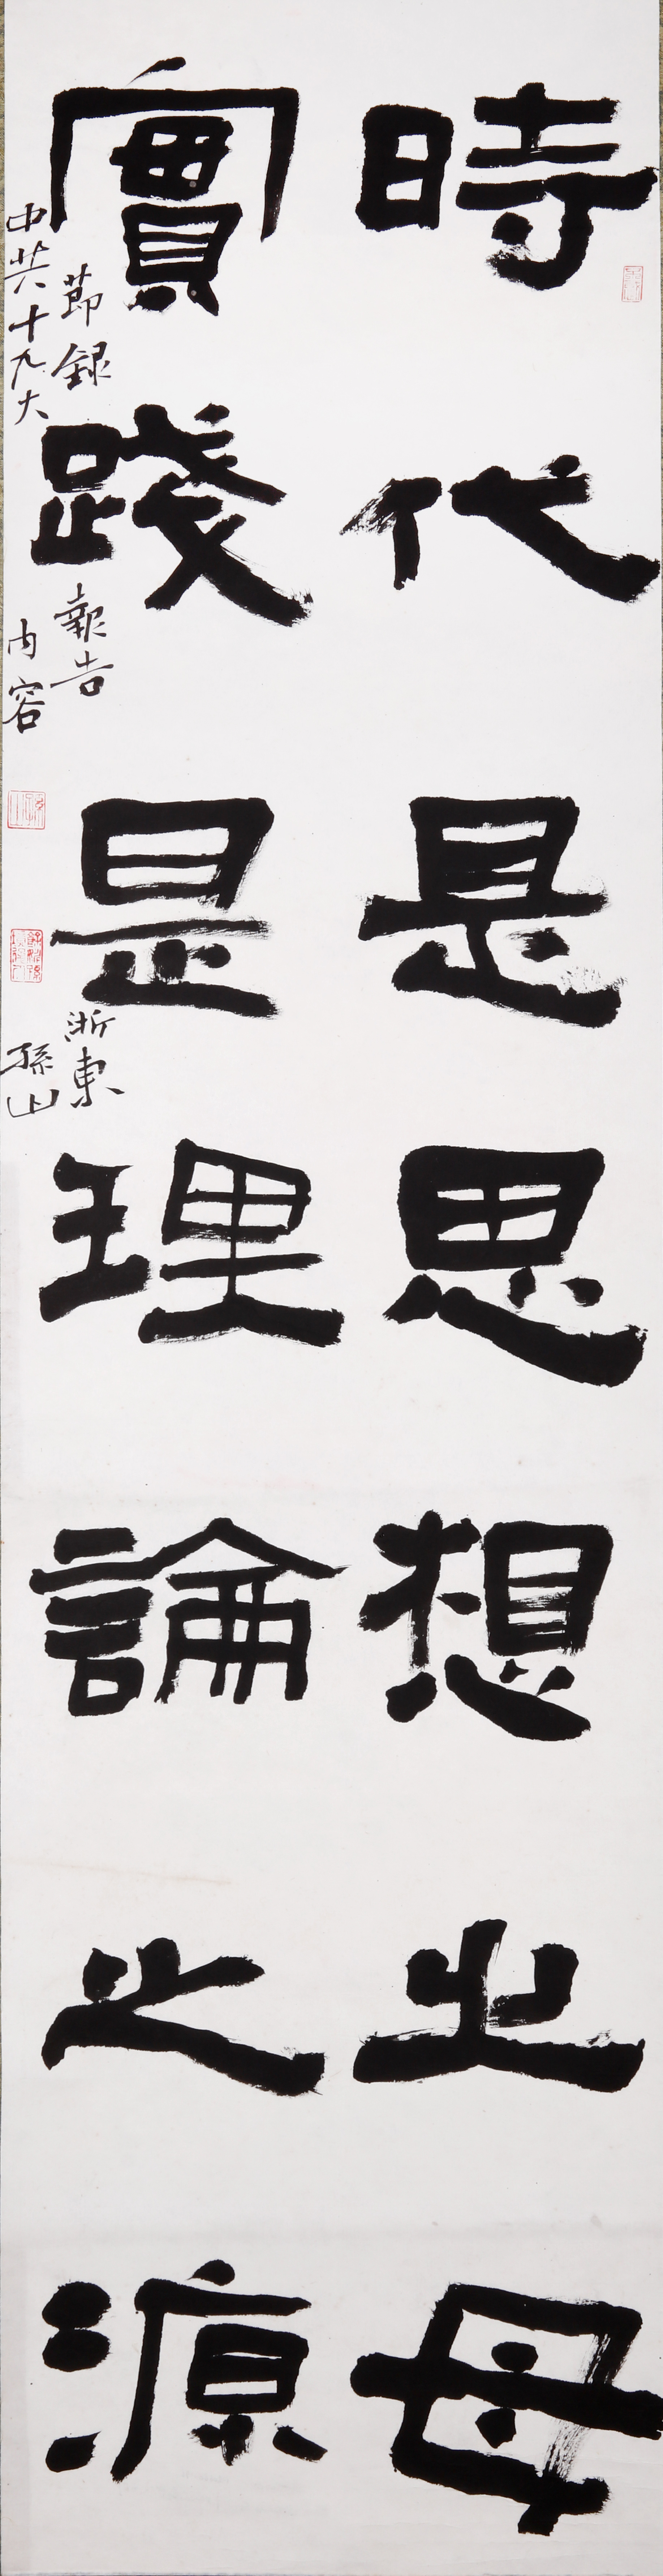 時代是思想之母
實踐是理論之源
節錄
中共十九大
報告
内容
浙東
孫山